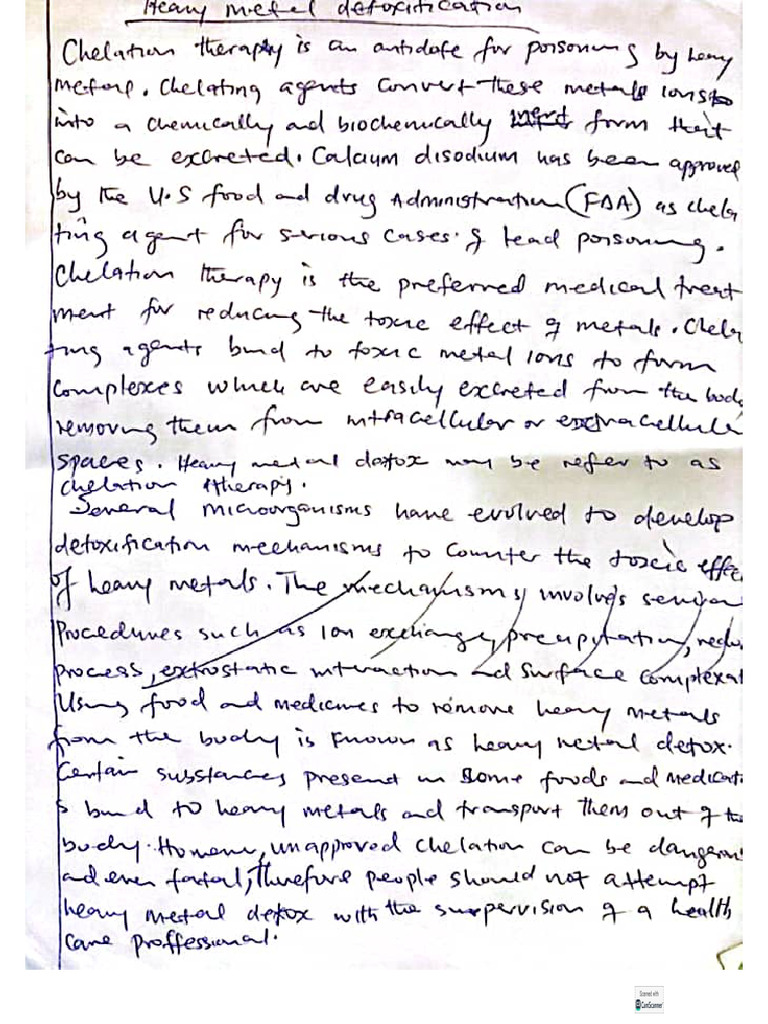 Heavy metal detoxitication
Chelation therapy is an antidote for poisoning by heavy
metals. Chelating agents convert these metals ions
into a chemically and biochemically inert form that
can be excreted. Calcium disodium has been approved
by the U.S food and drug Administration (FDA) as chela
ting agent for serious cases of lead poisoning.
Chelation therapy is the preferred medical treat
ment for reducing the toxic effect of metals. Chela
ting agents bind to toxic metal ions to form
complexes which are easily excreted from the body
removing them from intracellular or extracellula
spaces. Heavy metal detox may be refer to as
chelation therapy.
Several microorganisms have evolved to develop
detoxification mechanisms to counter the toxic effec
of heavy metals. The mechanisms involves
Procedures such as ion exchange, precipitation, redu
process, extrostatic interaction and surface complexat
Using food and medicines to remove heavy metals
from the body is known as heavy metal detox.
Certain substances present in some foods and medicati
s bind to heavy metals and transport them out of the
body. However, unapproved chelation can be dangerou
and even fatal, Therefore people should not attempt
heavy metal detox with the supervision of a health
care proffessional.
Scanned with
CamScanner